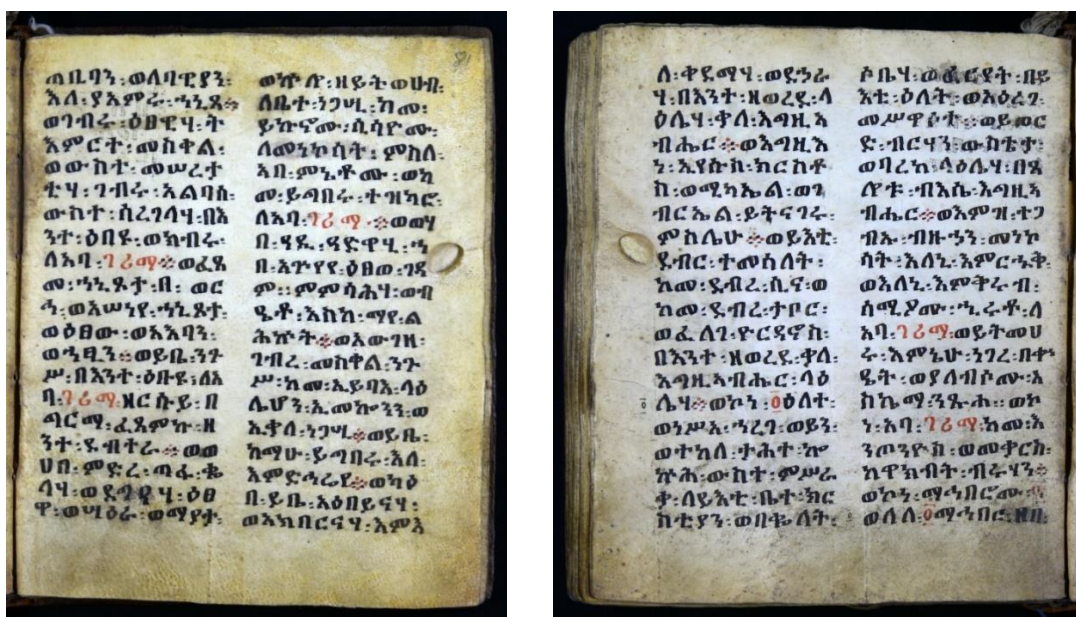 ጠቢባን፡ወለባዊያን፡
እለ፡ያአምሩ፡ኀኒጸ።
ወገብሩ፡ዕፀዊሃ፡ት
እምርተ፡መስቀል፡
ወውስተ፡መሠረታ
ቲሃ፡ገብሩ፡አልባሰ፡
ውስተ፡ሰረገላሃ፡በእ
ንተ፡ዕበዩ፡ወክብሩ፡
ለአባ፡ገሪማ።ወፈጸ
መ፡ኀኒጾታ፡በ፡ወር
ኅ፡ወአሠነየ፡ኀኒጾታ፡
ወዕፀው፡ወአእባን፡
ወኅፂን።ወይቤ፡ንጉ
ሥ፡በእንተ፡ዕበዩ፡ለአ
ባ፡ገሪማ፡ዘርሱይ፡በ
ጣርማ፡ፈጸምኩ፡ዘ
ንተ፡ደብተራ።ወወ
ሀበ፡ምድረ፡
ላሃ፡ዕፀ
ዋ፡ወሣዕራ፡ወማያታ፡
ዘይት፡ወሀበ፡
ለቤተ፡ነጋሢ፡ከመ፡
ይኩኖሙ፡ሲሳዮሙ፡
ለመነኮሳት፡ምስለ፡
አበ፡ምኔቶሙ፡ወከ
መ፡ይግበሩ፡ተዝካሮ፡
ለአባ፡ገሪማ።ወወሃ
በ፡
በ፡ዕፀው፡ገዳ
ም፡ወብ
ማየ፡ል
ሕኵት።ወእውገዘ፡
ገብረ፡መስቀል፡ንጉ
ሥ፡ከመ፡ኢይባእ፡ላዕ
ሌሆን፡ኢመኰንን፡ወ
ኢቃለ፡ነጋሢ።ወይቤ፡
ከማሁ፡ይግበሩ፡እለ፡
እምድኅሬየ።ወካዕ
በ፡ይቤ፡አዕበይናሃ፡
ወአክበርናሃ፡እምእ
ለ፡ቀደማሃ፡ወደኃራ
ሃ፡በእንተ፡ዘወረደ፡ላ
ዕሌሃ፡ቃለ፡እግዚአ
ብሔር።ወእግዚእ
ነ፡ኢየሱስ፡ክርስቶ
ስ፡ወሚካኤል፡ወገ
ብርኤል፡ይትናገሩ፡
ምስሌሁ።ወይእቲ፡
ደብር፡ተመሰለት፡
ከመ፡ደብረ፡ሲና፡ወ
ከመ፡ደብረ፡ታቦር፡
ወፈለገ፡ዮርዳኖስ፡
በእንተ፡ዘወረደ፡ቃለ፡
እግዚአብሔር፡ላዕ
ሌሃ።ወኮነ፡፩ዕለተ፡
ወነሥአ፡ኀረገ፡ወይን፡
ወተከለ፡ታሕተ፡ኰ
ኵሕ፡ውስተ፡ምሥራ
ቀ፡ለይእቲ፡ቤተ፡ክር
ስቲያን፡ወበቈለት፡
ሶቤሃ፡ወፈርየት፡በይ
እቲ፡ዕለት፡ወአዕረገ፡
መሥዋዕተ።ወይወር
ድ፡ብርሃን፡ውስቴታ፡
ወባረከ፡ላዕሌሃ፡በጸ
ሎቱ፡ብእሴ፡እግዚአ
ብሔር።ወእምዝ፡ተጋ
ብኡ፡ብዙኃን፡መነኮ
ሳት፡እለኒ፡እምርሑቅ፡
ወእለኒ፡እምቅሩብ፡
ሰሚዖሙ፡ኂሩቶ፡ለ
አባ፡ገሪማ፡ወይትመሀ
ሩ፡እምኔሁ፡ነገረ፡በቀኍ
ዔት፡ወያለብሶሙ፡አ
ስኬማ፡ንጹሐ፡ወኮ
ነ፡አባ፡ገሪማ፡ከመ፡እ
ንጦንዮስ፡ወመቃርስ፡
ከዋክብት፡ብሩሃን።
ወኮነ፡ማኅበሮሙ፡
ወለለ፡፩ማኅበሮ፡ዘበ፡